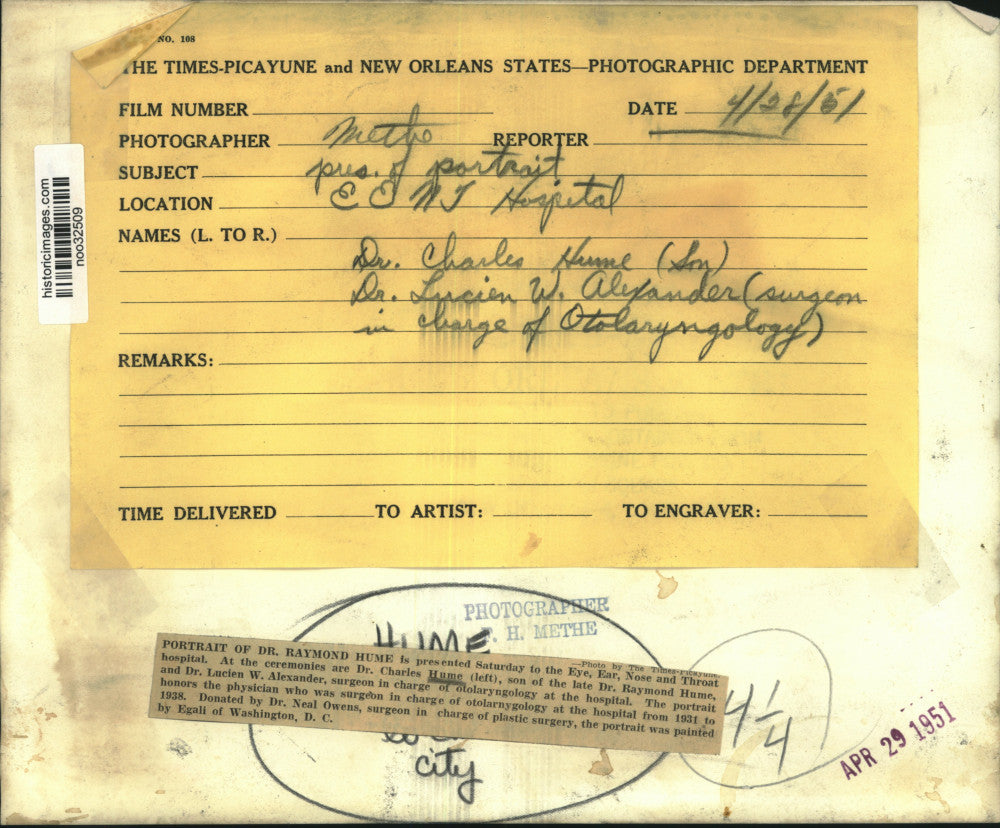 NO. 108
THE TIMES-PICAYUNE and NEW ORLEANS STATES—PHOTOGRAPHIC DEPARTMENT
FILM NUMBER
DATE 4/28/51
PHOTOGRAPHER Methe REPORTER
SUBJECT pres. of portrait
LOCATION E E N T Hospital
NAMES (L. TO R.)
Dr. Charles Hume (Son)
Dr. Lucien W. Alexander (surgeon
in charge of Otolaryngology)
REMARKS:
TIME DELIVERED TO ARTIST: TO ENGRAVER:
historicimages.com
noo32509
PHOTOGRAPHER
F. H. METHE
HUME
—Photo by The Times-Picayune
PORTRAIT OF DR. RAYMOND HUME is presented Saturday to the Eye, Ear, Nose and Throat
hospital. At the ceremonies are Dr. Charles Hume (left), son of the late Dr. Raymond Hume,
and Dr. Lucien W. Alexander, surgeon in charge of otolaryngology at the hospital. The portrait
honors the physician who was surgeon in charge of otolarnygology at the hospital from 1931 to
1938. Donated by Dr. Neal Owens, surgeon in charge of plastic surgery, the portrait was painted
by Egali of Washington, D. C.
city
4 1/4
APR 29 1951